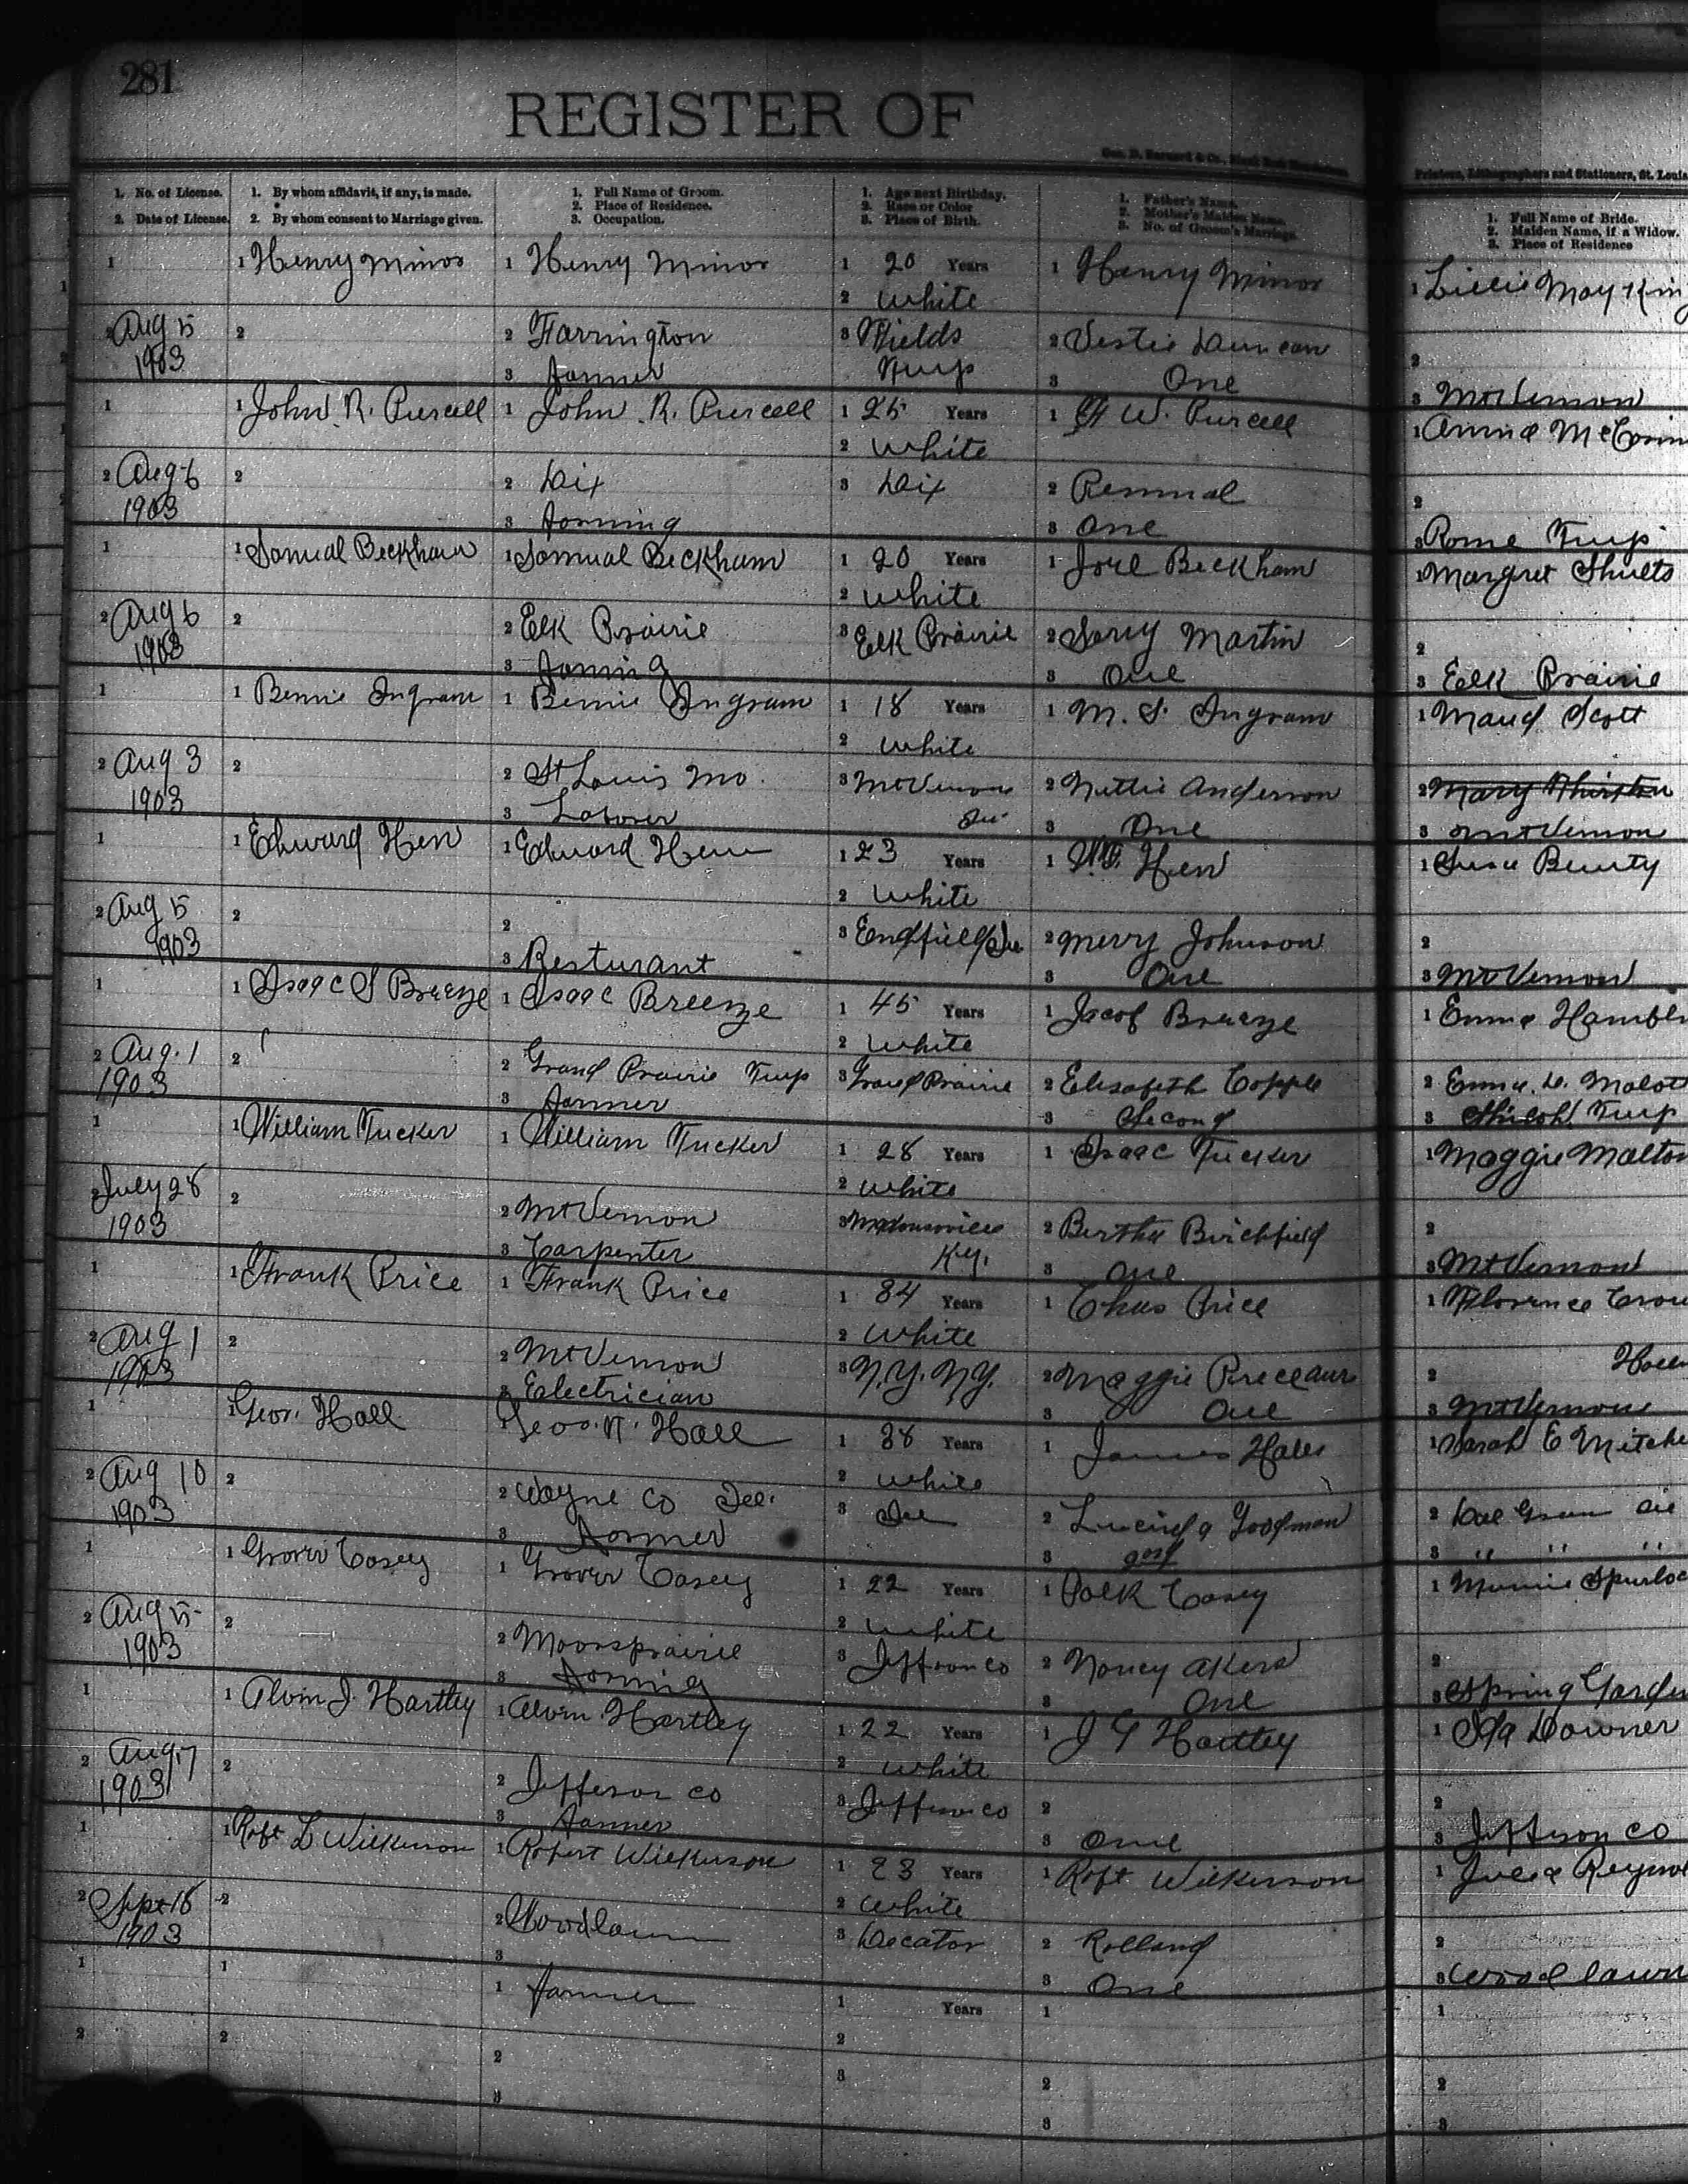 281
REGISTER OF
Printers, Lithographers and Stationers, St. Louis
1. No. of License.
2. Date of License.
1. By whom affidavit, if any, is made.
2. By whom consent to Marriage given.
1. Full Name of Groom.
2. Place of Residence.
3. Occupation.
1. Age next Birthday.
2. Race or Color
3. Place of Birth.
1. Father's Name.
2. Mother's Maiden Name.
3. No. of Groom's Marriage.
1. Full Name of Bride.
2. Maiden Name, if a Widow.
3. Place of Residence
1 1 Henry Minor 1 Henry Minor 1 20 Years 1 Henry Minor 1 Lillie May
2 White
2 Aug 5 2 2 Farrington 3 Fields 2 Vestie Duncan 2
1903 3 Farmer Twp 3 One 3 Mt Vernon
1 1 John R. Purcell 1 John R. Purcell 1 25 Years 1 W. Purcell 1
2 White
2 Aug 6 2 2 Dix 3 Dix 2 2
1903 3 Farming 3 One 3 Rome Twp
1 1 Samual Beckham 1 Samual Beckham 1 20 Years 1 Joel Beckham 1 Margret Shults
2 White
2 Aug 6 2 2 Elk Prairie 3 Elk Prairie 2 Martin 2
1903 3 Farming 3 One 3 Elk Prairie
1 1 Bennie Ingram 1 Bennie Ingram 1 18 Years 1 M. S. Ingram 1 Maud Scott
2 White
2 Aug 3 2 2 St Louis Mo. 3 Mt Vernon 2 Nettie Anderson 2 Mary
1903 3 Laborer Ill 3 One 3 Mt Vernon
1 1 Edward Hen 1 Edward Hen 1 23 Years 1 Hen 1
2 White
2 Aug 5 2 2 3 Endfield Ill 2 Johnson 2
1903 3 Resturant 3 One 3 Mt Vernon
1 1 Isaac S Breeze 1 Isaac Breeze 1 45 Years 1 Jacob Breeze 1 Emma
2 White
2 Aug. 1 2 2 Grand Prairie Twp 3 Grand Prairie 2 Elisabeth Copple 2 Emma
1903 3 Farmer 3 Second 3 Shiloh Twp
1 1 William Tucker 1 William Tucker 1 28 Years 1 Isaac Tucker 1 Maggie
2 White
2 July 28 2 2 Mt Vernon 3 2 Bertha Birchfield 2
1903 3 Carpenter Ky. 3 One 3 Mt Vernon
1 1 Frank Price 1 Frank Price 1 34 Years 1 Chas Price 1 Florence
2 White
2 Aug 1 2 2 Mt Vernon 3 N.Y. N.Y. 2 Maggie 2
1903 3 Eelectrician 3 One 3 Mt Vernon
1 1 Geor. Hall 1 Geo. Hall 1 38 Years 1 James Hall 1 Sarah E
2 White
2 Aug 10 2 2 Wayne Co Ill. 3 Ill 2 Lucinda Goodman 2
1903 3 Farmer 3 3 " " "
1 1 Grover Casey 1 Grover Casey 1 22 Years 1 Polk Casey 1
2 White
2 Aug 5 2 2 Moorsprairie 3 2 Nancy Akers 2
1903 3 Farming 3 One 3 Spring
1 1 Alvin J. Hartley 1 Alvin Hartley 1 22 Years 1 J G Hartley 1 Ida Downer
2 White
2 Aug 17 2 2 Jefferson co 3 Jefferson co 2 2
1903 3 Farmer 3 One 3 Jefferson co
1 1 Robt L Wilkerson 1 Robert Wilkerson 1 23 Years 1 Robt Wilkerson 1 Julia
2 White
2 Sept 2 2 Woodlawn 3 Decator 2 Rolland 2
1903 3 3 One 3 Wood lawn
1 1 1 Farmer 1 Years 1 1
2 2 2 2 2 2
3 3 3 3